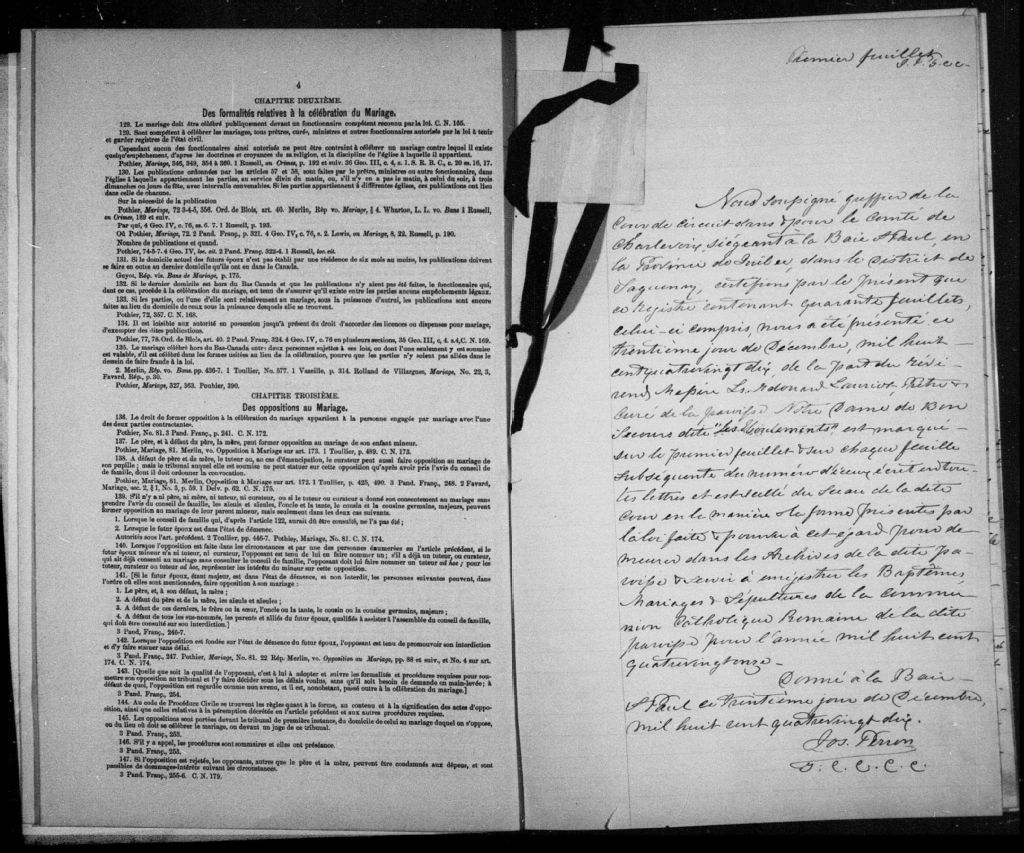 4
CHAPITRE DEUXIÈME.
Des formalités relatives à la célébration du Mariage.
128. Le mariage doit être célébré publiquement devant un fonctionnaire compétent reconnu par la loi. C. N. 165.
129. Sont compétents à célébrer les mariages, tous prêtres, curés, ministres et autres fonctionnaires autorisés par la loi à tenir
et garder registres de l'état civil.
Cependant aucun des fonctionnaires ainsi autorisés ne peut être contraint à célébrer un mariage contre lequel il existe
quelqu'empêchement, d'après les doctrines et croyances de sa religion, et la discipline de l'église à laquelle il appartient.
Pothier, Mariage, 346, 349, 354 à 360. 1 Russell, on Crimes, p. 192 et suiv. 36 Geo. III, c. 4, s. 1. S. R. B. C., c. 20 ss. 16, 17.
130. Les publications ordonnées par les articles 57 et 58, sont faites par le prêtre, ministre ou autre fonctionnaire, dans
l'église à laquelle appartiennent les parties, au service divin du matin, ou, s'il n'y en a pas le matin, à celui du soir, à trois
dimanches ou jours de fête, avec intervalle convenables. Si les parties appartiennent à différentes églises, ces publications ont lieu
dans celle de chacune.
Sur la nécessité de la publication
Pothier, Mariage, 72 3-4-5, 556. Ord. de Blois, art. 40. Merlin, Rép vo. Mariage, § 4. Wharton, L. L. vo. Bans 1 Russell,
on Crimes, 189 et suiv.
Par qui, 4 Geo. IV, c. 76, ss. 6. 7. 1 Russell, p. 193.
Où Pothier, Mariage, 72. 2 Pand. Franç., p. 321. 4 Geo. IV, c. 76, s. 2. Lewis, on Mariage, 8, 22. Russell, p. 190.
Nombre de publications et quand.
Pothier, 74-5-7. 4 Geo. IV, loc. cit. 2 Pand. Franç. 323-4. 1 Russell, loc. cit.
131. Si le domicile actuel des futurs époux n'est pas établi par une résidence de six mois au moins, les publications doivent
se faire en outre au dernier domicile qu'ils ont eu dans le Canada.
Guyot, Rép. vis. Bans de Mariage, p. 175.
132. Si le dernier domicile est hors du Bas Canada et que les publications n'y aient pas été faites, le fonctionnaire qui,
dans ce cas, procède à la célébration du mariage, est tenu de s'assurer qu'il n'existe entre les parties aucuns empêchements légaux.
133. Si les parties, ou l'une d'elle sont relativement au mariage, sous la puissance d'autrui, les publications sont encore
faites au lieu du domicile de ceux sous la puissance desquels elle se trouvent.
Pothier, 72, 357. C. N. 168.
134. Il est loisible aux autorité en possession jusqu'à présent du droit d'accorder des licences ou dispenses pour mariage,
d'exempter des dites publications.
Pothier, 77, 78. Ord. de Blois, art. 40. 2 Pand. Franç. 324. 4 Geo. IV, c. 76 en plusieurs sections, 35 Geo. III, c. 4. s.4, C. N. 169.
135. Le mariage célébré hors du Bas-Canada entre deux personnes sujettes à ses lois, ou dont l'une seulement y est soumise
est valable, s'il est célébré dans les formes usitées au lieu de la célébration, pourvu que les parties n'y soient pas allées dans le
dessein de faire fraude à la loi.
2. Merlin, Rép. vo. Bans, pp. 436-7. 1 Toullier, No. 577. 1 Vazeille, p. 314. Rolland de Villargues, Mariage, No. 22, 3,
Favard, Rép., p. 30.
Pothier, Mariage, 327, 363. Pouhier, 390.
CHAPITRE TROISIÈME.
Des oppositions au Mariage.
136. Le droit de former opposition à la célébration du mariage appartient à la personne engagée par mariage avec l'une
des deux parties contractantes.
Pothier, No. 81. 3 Pand. Franç., p. 241. C. N. 172.
137. Le père, et à défaut du père, la mère, peut former opposition au mariage de son enfant mineur.
Pothier, Mariage, 81. Merlin, vo. Opposition à Mariage sur art. 173. 1 Toullier, p. 489. C. N. 173.
138. A défaut de père et de mère, le tuteur ou, au cas d'émancipation, le curateur peut aussi faire opposition au mariage de
son pupille; mais le tribunal auquel elle est soumise ne peut statuer sur cette opposition qu'après avoir pris l'avis du conseil de
famille, dont il doit ordonner la convocation.
Pothier, Mariage, 81. Merlin, Opposition à Mariage sur art. 172. 1 Toullier, p. 425, 490. 3 Pand. Franç., 248. 2 Favard,
Mariage, sec. 2, § 1, No. 3, p. 59. 1 Delv. p. 62. C. N. 175.
139. S'il n'y a ni père, ni mère, ni tuteur, ni curateur, ou si le tuteur ou curateur a donné son consentement au mariage sans
prendre l'avis du conseil de famille, les aïeuls et aïeules, l'oncle et la tante, le cousin et la cousine germains, majeurs, peuvent
former opposition au mariage de leur parent mineur, mais seulement dans les deux cas suivants.
1. Lorsque le conseil de famille qui, d'après l'article 122, aurait dû être consulté, ne l'a pas été;
2. Lorsque le futur époux est dans l'état de démence.
Autorités sous l'art. précédent 2 Toullier, pp. 446-7. Pothier, Mariage, No. 81. C. N. 174.
140. Lorsque l'opposition est faite dans les circonstances et par une des personnes énumérées en l'article précédent, si le
futur époux mineur n'a ni tuteur, ni curateur, l'opposant est tenu de lui en faire nommer un; s'il a déjà un tuteur, ou curateur,
qui ait déjà consenti au mariage sans consulter le conseil de famille, l'opposant doit lui faire nommer un tuteur ad hoc; pour les
tuteur, curateur ou tuteur ad hoc, représenter les intérêts du mineur sur cette opposition.
141. [Si le futur époux, étant majeur, est dans l'état de démence, et non interdit, les personnes suivantes peuvent, dans
l'ordre où elles sont mentionnées, faire opposition à son mariage:
1. Le père, et, à son défaut, la mère;
2. A défaut du père et de la mère, les aïeuls et aïeules;
3. A défaut de ces derniers, le frère ou la sœur, l'oncle ou la tante, le cousin ou la cousine germains, majeurs;
4. A défaut de tous les sus-nommés, les parents et alliés du futur époux, qualifiés à assister à l'assemblée du conseil de famille,
qui doit être consulté sur son interdiction.]
3 Pand. Franç., 246-7.
142. Lorsque l'opposition est fondée sur l'état de démence du futur époux, l'opposant est tenu de promouvoir son interdiction
et d'y faire statuer sans délai.
3 Pand. Franç., 247. Pothier, Mariage, No. 81. 22 Rép. Merlin, vo. Opposition au Mariage, pp. 88 et suiv., et No. 4 sur art.
174. C. N. 174.
143. [Quelle que soit la qualité de l'opposant, c'est à lui à adopter et suivre les formalités et procédures requises pour sou-
mettre son opposition au tribunal et l'y faire décider sous les délais voulus, sans qu'il soit besoin de demande en main-levée; à
défaut de quoi, l'opposition est regardée comme non avenue, et il est, nonobstant, passé outre à la célébration du mariage.]
3 Pand. Franç., 254.
144. Au code de Procédure Civile se trouvent les règles quant à la forme, au contenu et à la signification des actes d'oppo-
sition, ainsi que celles relatives à la péremption décrétée en l'article précédent et aux autres procédures requises.
145. Les oppositions sont portées devant le tribunal de première instance, du domicile de celui au mariage duquel on s'oppose,
ou du lieu où doit se célébrer le mariage, ou devant un juge de ce tribunal.
3 Pand. Franç., 253.
146. S'il y a appel, les procédures sont sommaires et elles ont préséance.
3 Pand. Franç., 253.
147. Si l'opposition est rejetée, les opposants, autres que le père et la mère, peuvent être condamnés aux dépens, et sont
passibles de dommages-intérêts suivant les circonstances.
3 Pand. Franç., 255-6. C. N. 179.
Premier feuillet
J. P. G. C. C.
Nous soussigné greffier de la
Cour de circuit dans & pour le Comté de
Charlevoix, siégeant à la Baie St Paul, en
la Province de Québec, dans le District de
Saguenay, certifions par le présent que
ce Régistre contenant quarante feuillets,
celui-ci compris, nous a été présenté ce
trentième jour de Décembre, mil huit
cent quatrevingt dix, de la part du Révé-
rend Messire Ls. Edouard Lauriot, Prêtre &
Curé de la paroisse Notre Dame de Bon
Secours dite "les Eboulements" est marqué
sur le premier feuillet & sur chaque feuille
Subséquente du numéro d'iceux écrit en tou-
tes lettres et est scellé du Sceau de la dite
Cour en la manière & la forme présentes par
la loi faite & pourvu à cet égard, pour de-
meurer dans les Archives de la dite pa-
roisse & servir à enregistrer les Baptêmes,
Mariages & Sépultures de la Commu-
nion Catholique Romaine de la dite
paroisse pour l'année mil huit cent
quatrevingtonze.
Donné à la Baie
St Paul ce trentième jour de Décembre,
mil huit cent quatrevingt dix.
Jos. Perron
G. C. C. C. C.